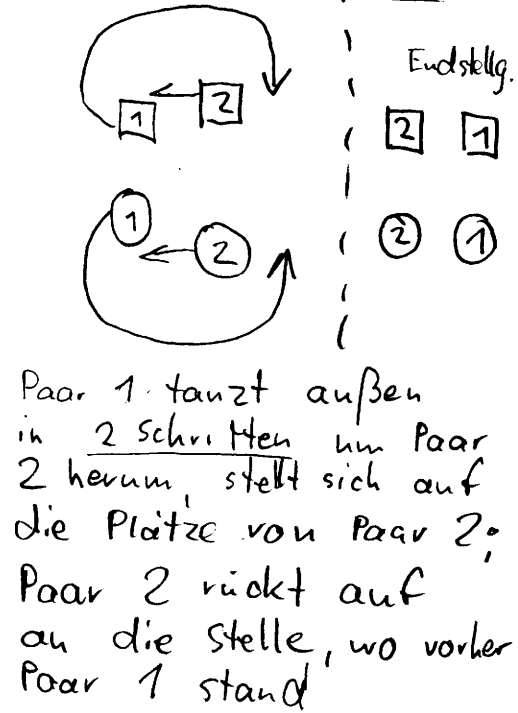 Endstellg.
1 2
2 1
1 2
2 1
Paar 1 tanzt außen
in 2 Schritten um Paar
2 herum, stellt sich auf
die Plätze von Paar 2;
Paar 2 rückt auf
an die Stelle, wo vorher
Paar 1 stand